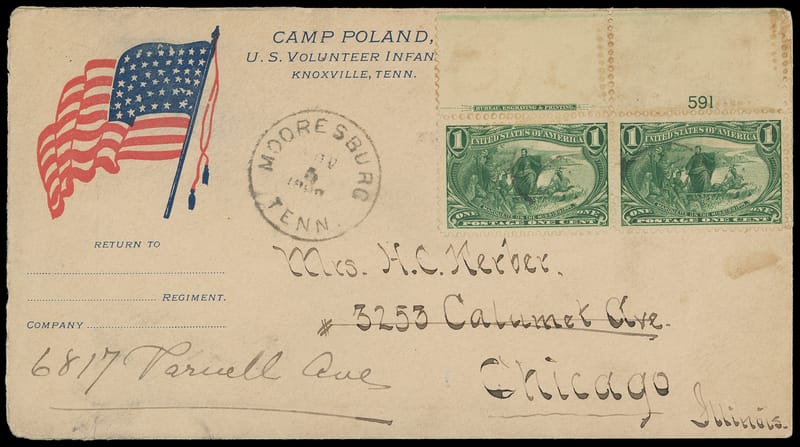 CAMP POLAND,
U. S. VOLUNTEER INFAN
KNOXVILLE, TENN.
BUREAU, ENGRAVING & PRINTING.
591
MOORESBURG
5
TENN.
1 UNITED STATES OF AMERICA 1
MARQUETTE ON THE MISSISSIPPI
ONE POSTAGE ONE CENT ONE
1 UNITED STATES OF AMERICA 1
MARQUETTE ON THE MISSISSIPPI
ONE POSTAGE ONE CENT ONE
RETURN TO
REGIMENT.
COMPANY
Mrs. H. C. Kerber.
3253 Calumet Ave.
6817 Parnell Ave
Chicago
Illinois.